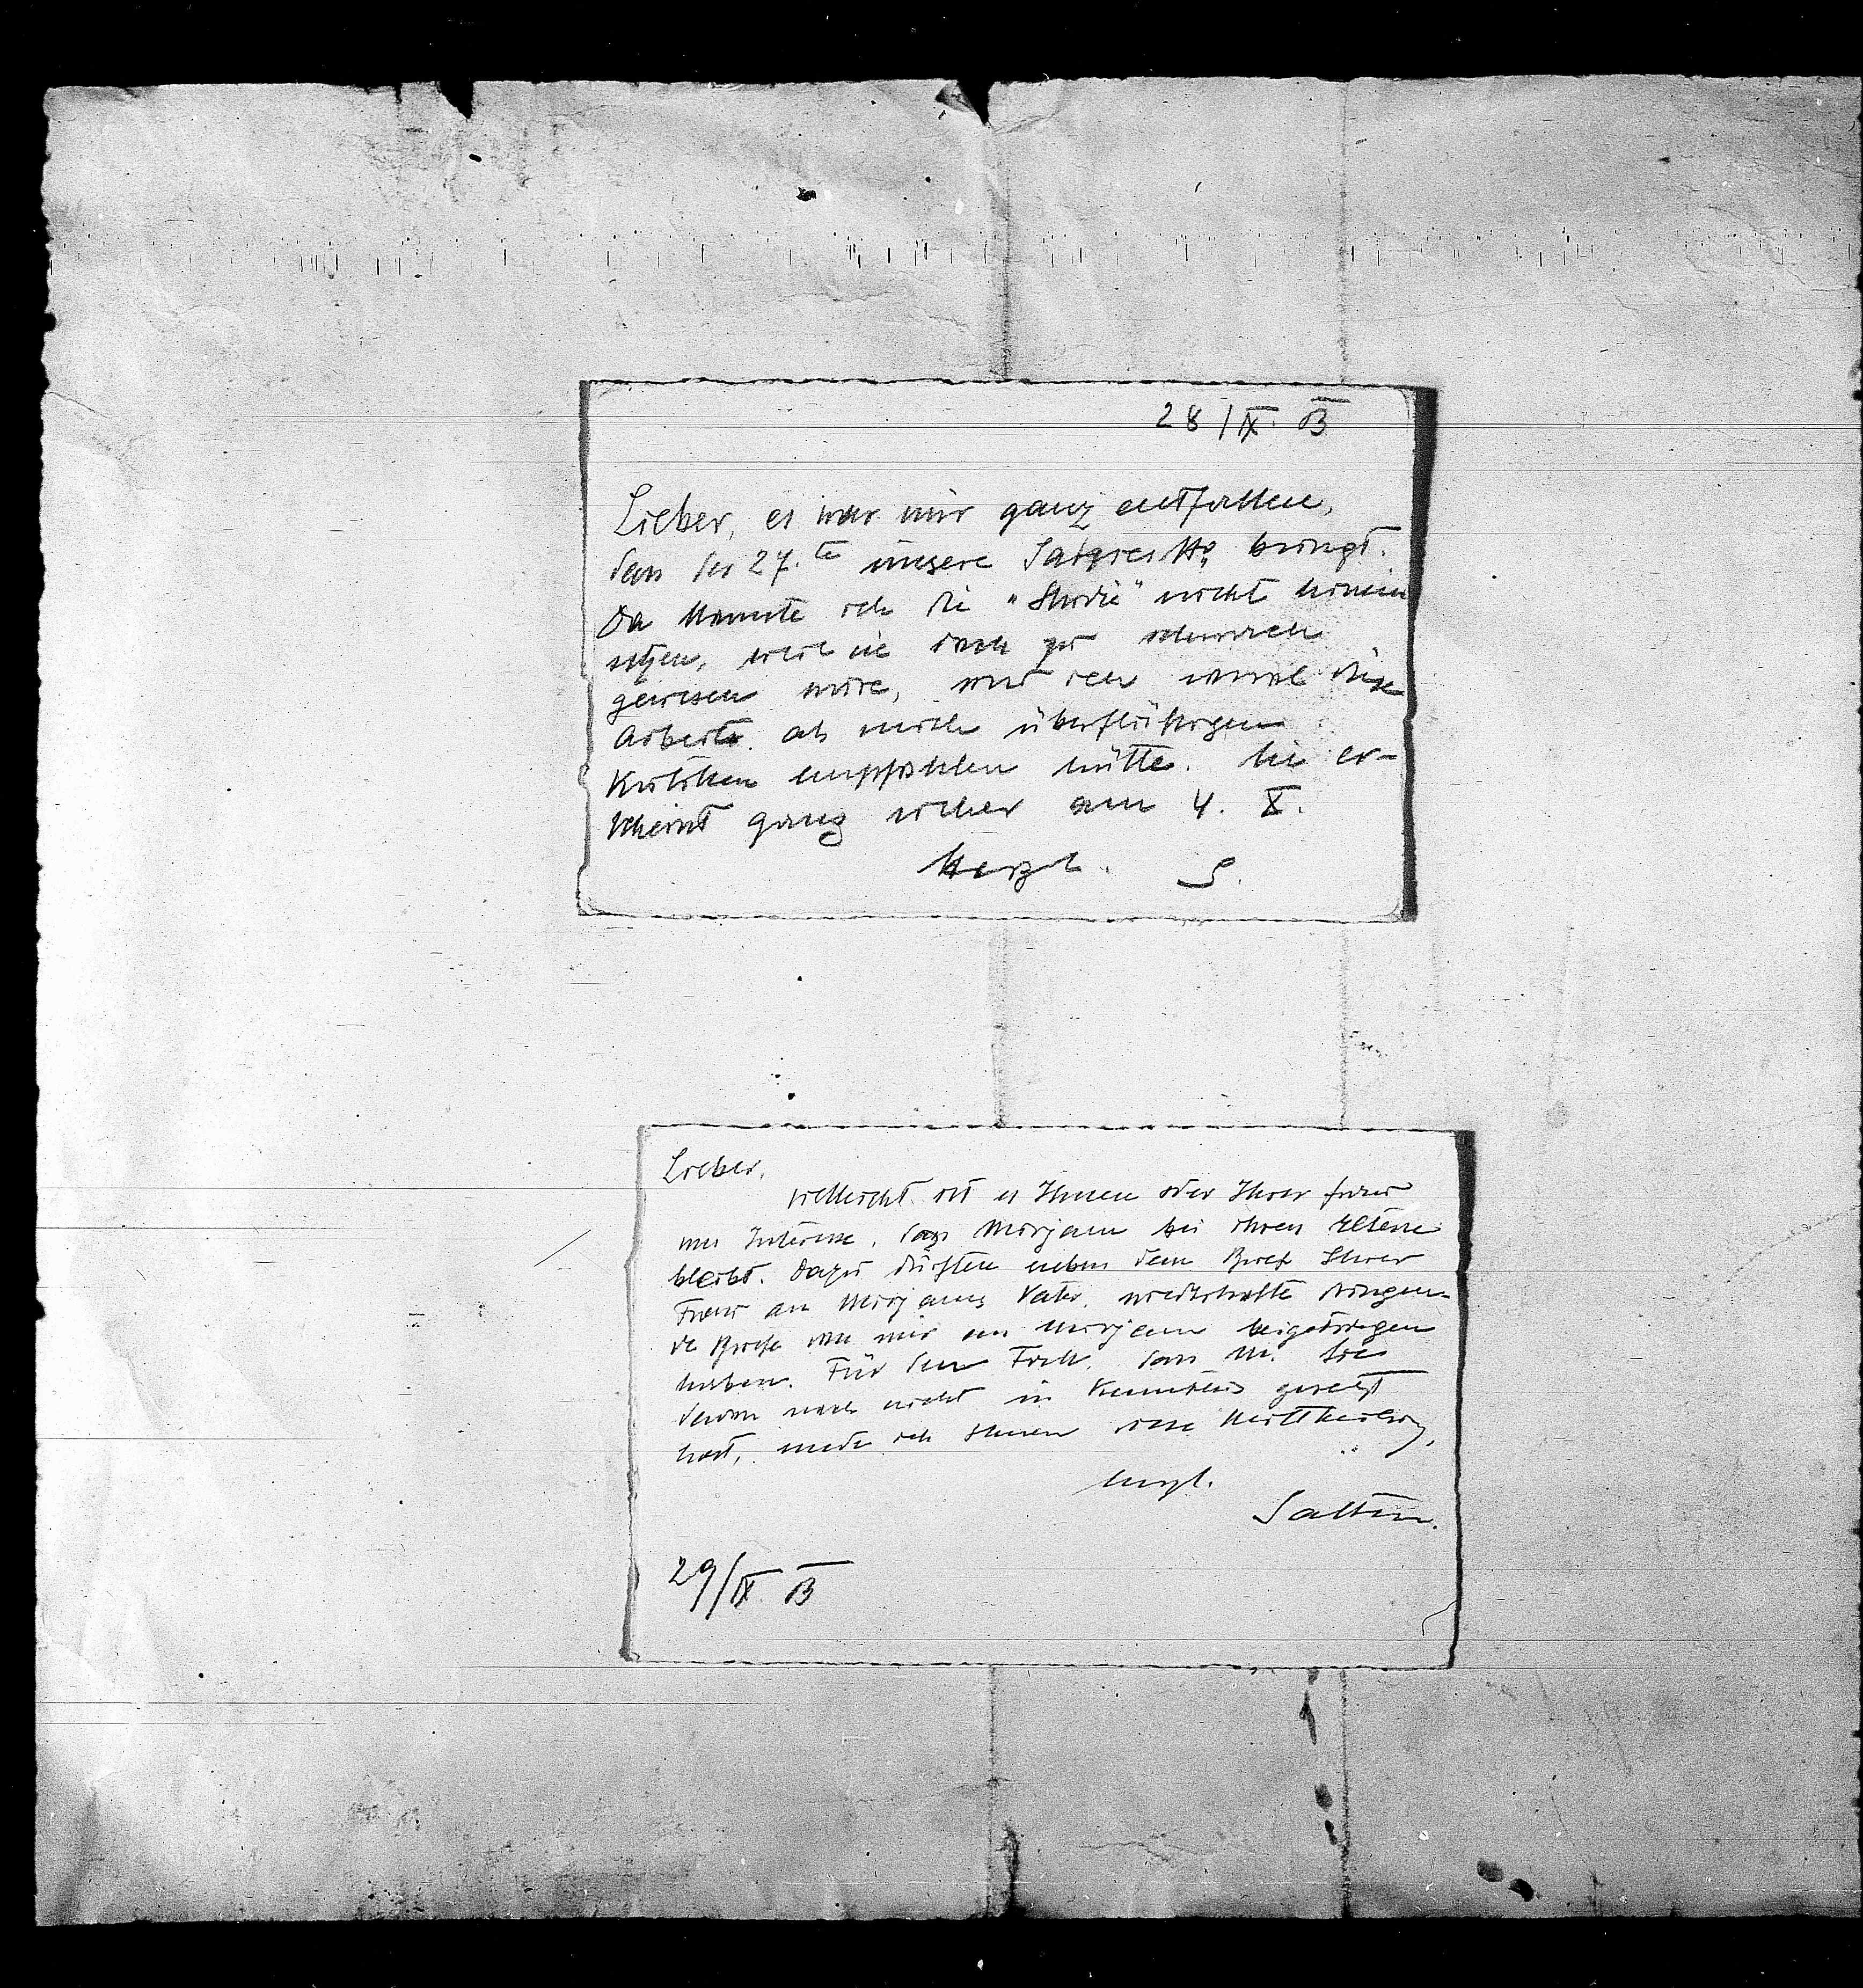 28/IX. 03
Lieber, es war mir ganz entfallen,
dass der 27.te unsere Satyres No bringt.
Da konnte ich die „Studie" nicht hinein
setzen, weil sie doch zu schwach
gewesen wäre, und ich sowol diese
Arbeit als mich überflüssigen
Kritiken empfohlen hätte. Sie er-
scheint ganz sicher am 4. X.
Herzl. S.
Lieber,
vielleicht ist es Ihnen oder Ihrer Frau
von Interesse, dass Mirjam bei ihren Eltern
bleibt. Dazu dürften neben dem Brief Ihrer
Frau an Mirjams Vater, wiederholte dringen-
de Briefe von mir an Mirjam beigetragen
haben. Für den Fall, dass M. Sie
davon noch nicht in Kenntnis gesetzt
hat, mache ich Ihnen diese Mittheilung,
herzl.
Salten.
29/IX. 03